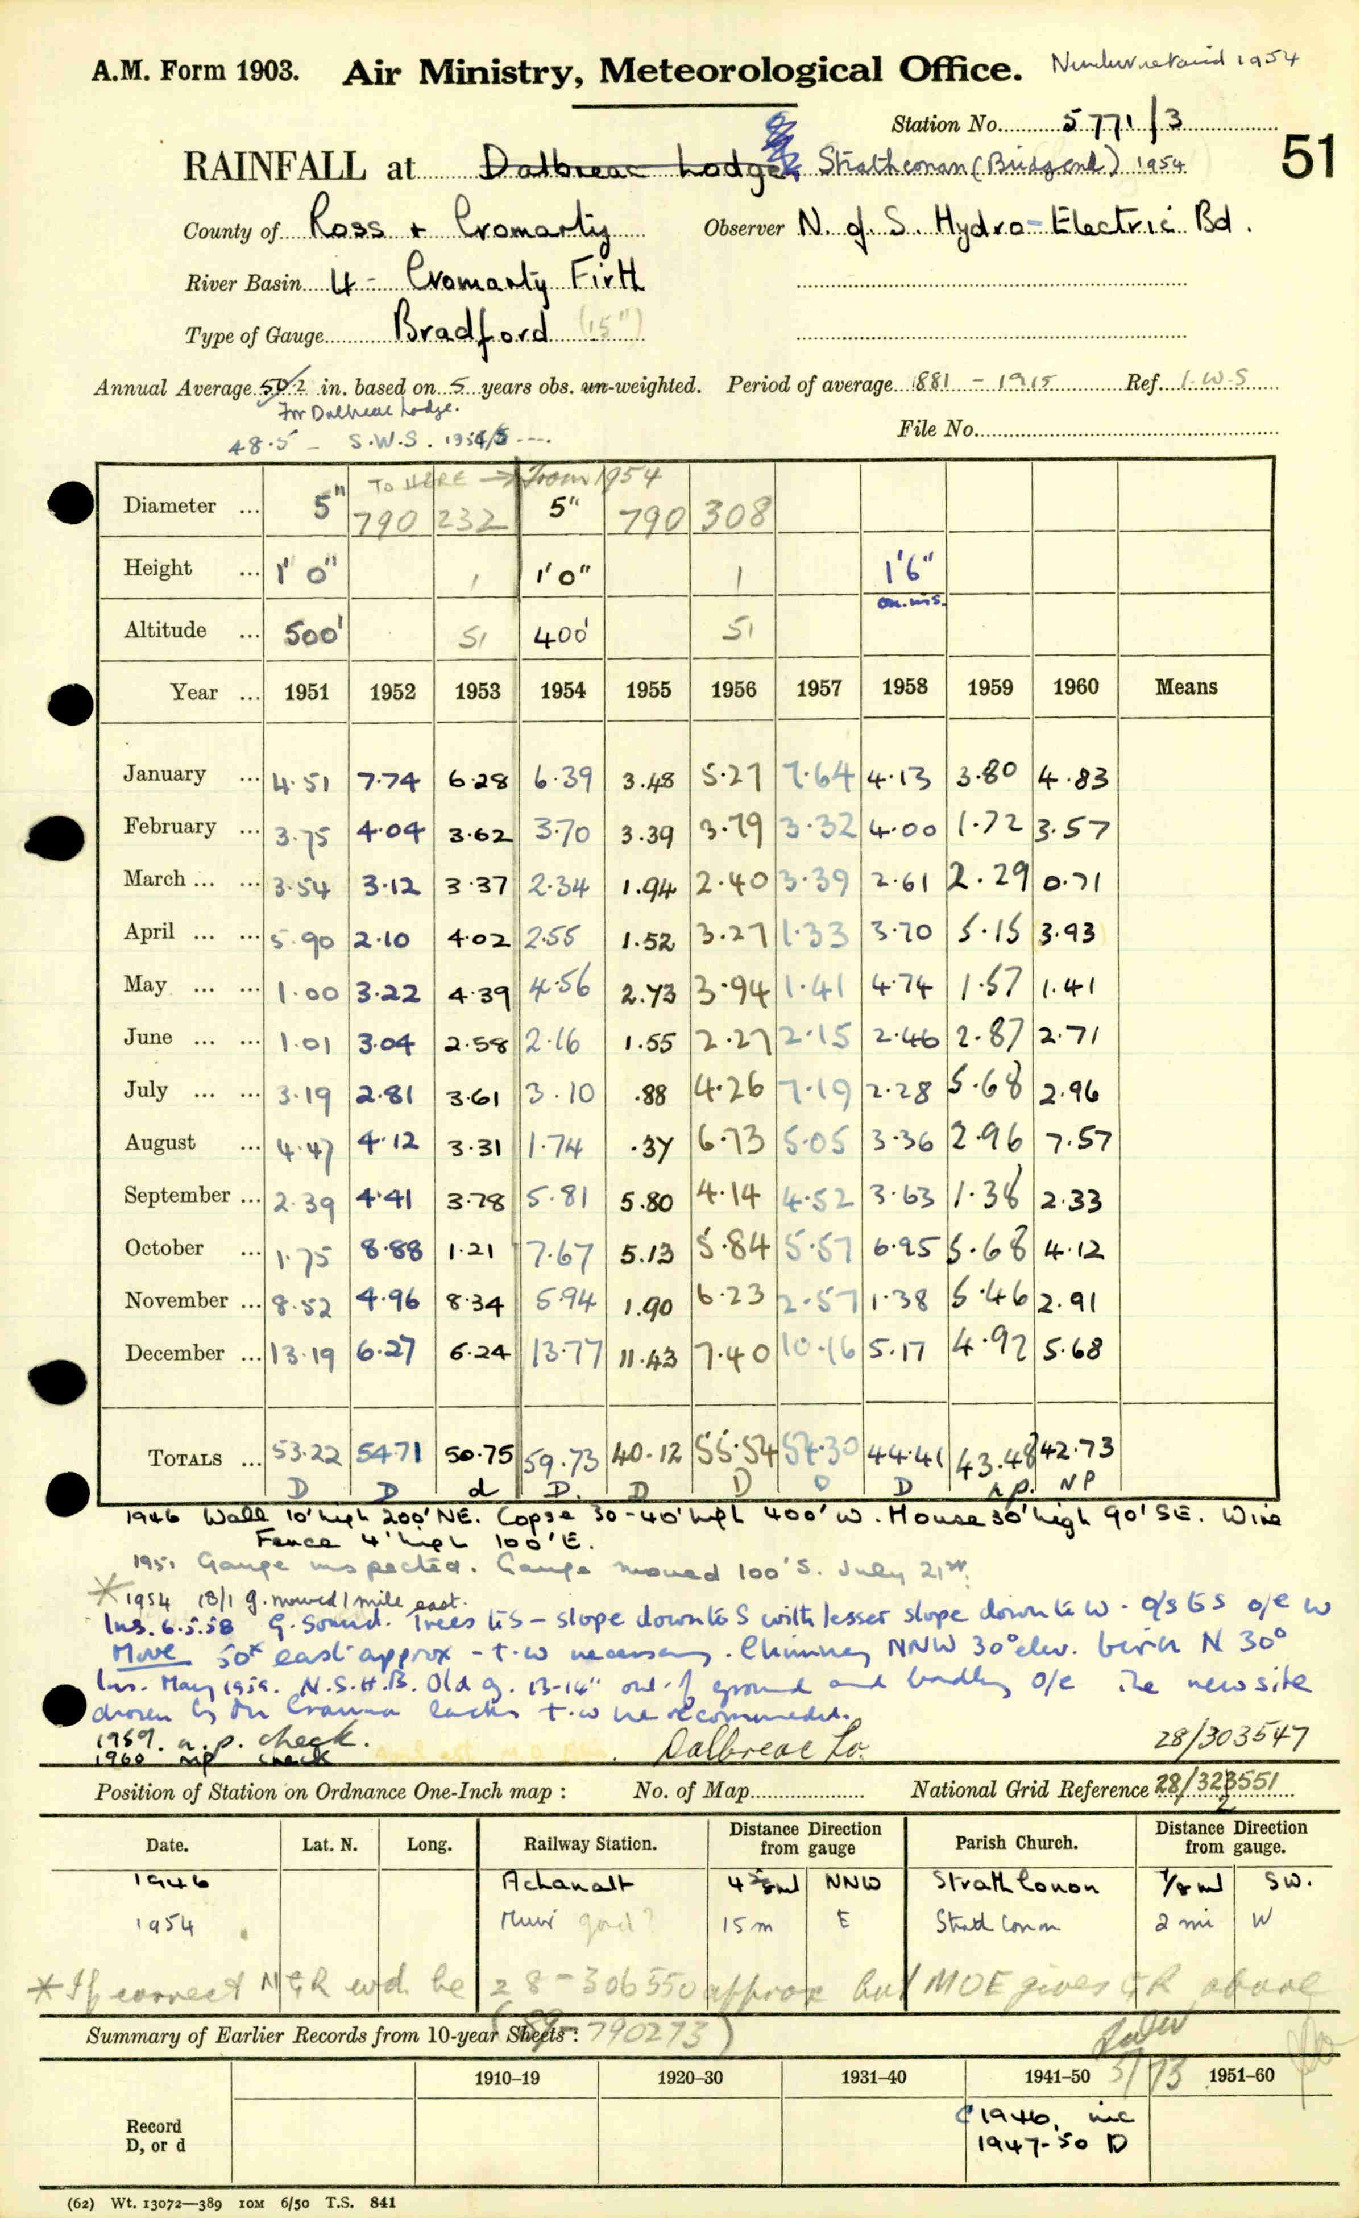 A.M. Form 1903. Air Ministry, Meteorological Office. 1954
Station No. 5771/3
51
RAINFALL at Dalbreac Lodge. Strathconan (Bridgend) 1954
County of Ross + Cromarty Observer N. of S. Hydro-Electric Bd.
River Basin 4 - Cromarty Firth
Type of Gauge Bradford (15")
Annual Average 50.2 in. based on 5 years obs. un-weighted. Period of average 1881 - 1915 Ref. I.W.S
For Dalbreac Lodge.
48.5 - S.W.S. 1954/5 ---.
File No.
TO HERE → From 1954
Diameter ... 5" 790 232 5" 790 308
Height ... 1' 0" 1 1'0" 1 1'6"
on. ins.
Altitude ... 500' 51 400' 51
Year ... 1951 1952 1953 1954 1955 1956 1957 1958 1959 1960 Means
January ... 4.51 7.74 6.28 6.39 3.48 5.27 7.64 4.13 3.80 4.83
February ... 3.75 4.04 3.62 3.70 3.39 3.79 3.32 4.00 1.72 3.57
March ... ... 3.54 3.12 3.37 2.34 1.94 2.40 3.39 2.61 2.29 0.71
April ... ... 5.90 2.10 4.02 2.55 1.52 3.27 1.33 3.70 5.15 3.93
May ... ... 1.00 3.22 4.39 4.56 2.73 3.94 1.41 4.74 1.57 1.41
June ... ... 1.01 3.04 2.58 2.16 1.55 2.27 2.15 2.46 2.87 2.71
July ... ... 3.19 2.81 3.61 3.10 .88 4.26 7.19 2.28 5.68 2.96
August ... 4.47 4.12 3.31 1.74 .37 6.73 5.05 3.36 2.96 7.57
September ... 2.39 4.41 3.78 5.81 5.80 4.14 4.52 3.63 1.38 2.33
October ... 1.75 8.88 1.21 7.67 5.13 5.84 5.57 6.95 5.68 4.12
November ... 8.52 4.96 8.34 5.94 1.90 6.23 2.57 1.38 5.46 2.91
December ... 13.19 6.27 6.24 13.77 11.43 7.40 10.16 5.17 4.92 5.68
TOTALS ... 53.22 54.71 50.75 59.73 40.12 55.54 54.30 44.41 43.48 42.73
D D d D. D D D D n.p. NP
1946 Wall 10' high 200' NE. Copse 30-40' high 400' W. House 30' high 90' SE. Wire
Fence 4' high 100' E.
1951 Gauge inspected. Gauge moved 100' S. July 21st.
* 1954 18/1 g. moved 1 mile east.
Ins. 6.5.58 G. Sound. Trees to S - slope down to S with lesser slope down to W. o/s E S o/e W
Move 50x east approx - t.w necessary. Chimney NNW 30° elev. birch N 30°
Ins. May 1959. N.S.H.B. Old g. 13-14" out of ground and badly o/e The new site
chosen by Mr t.w he recommended.
1959. n.p. check.
1960 np check
Dalbreac Lo. 28/303547
Position of Station on Ordnance One-Inch map : No. of Map National Grid Reference 28/323551
2
Date. Lat. N. Long. Railway Station. Distance Direction from gauge Parish Church. Distance Direction from gauge.
1946 Achanalt 4 5/8 ml NNW Strath Conon 7/8 ml SW.
1954 Muir 15 m E Strath Conon 2 mi W
* If correct NGR wd. be 28-306550 approx but MOE gives GR above
(89-790273)
Summary of Earlier Records from 10-year Sheets :
5/73
1910–19 1920–30 1931–40 1941–50 1951–60
Record
D, or d
1946, inc
1947-50 D
(62) Wt. 13072—389 10M 6/50 T.S. 841